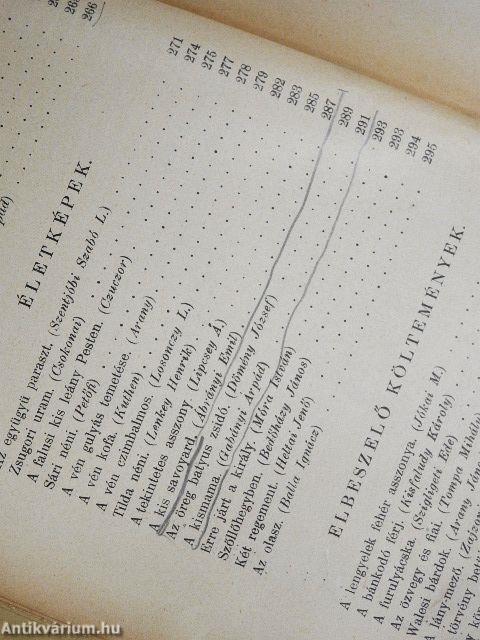 266
pád)
ÉLETKÉPEK.
Az együgyü paraszt. (Szentjóbi Szabó L.) 271
Zsugori uram. (Csokonai) 274
A falusi kis leány Pesten. (Czuczor) 275
Sári néni. (Petőfi) 277
A vén gulyás temetése. (Arany) 278
A vén kofa. (Kuthen) 279
A vén czimbalmos. (Losonczy L.) 282
Tilda néni. (Lenkey Henrik) 283
A tekintetes asszony. (Lipcsey Á.) 285
A kis savoyard. (Ábrányi Emil) 287
Az öreg batyus zsidó. (Dömény József) 289
A kismama. (Gabányi Árpád) 291
Erre járt a király. (Móra István) 293
Szőllőhegyben. (Bedőházy János) 293
Két regement. (Heltai Jenő) 294
Az olasz. (Balla Ignácz) 295
ELBESZELŐ KÖLTEMÉNYEK.
A lengyelek fehér asszonya. (Jókai M.)
A bánkodó férj. (Kisfaludy Károly)
A furulyácska. (Szigligeti Ede)
Az özvegy és fiái. (Tompa Mihály
Walesi bárdok. (Arany János
A lány-mező. (Zajzon
Antikvárium.hu